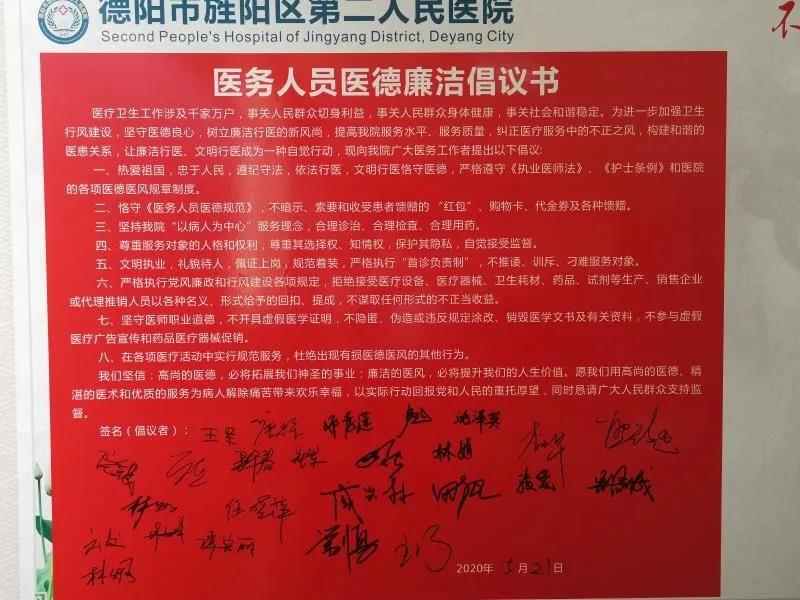 德阳市旌阳区第二人民医院
Second People's Hospital of Jingyang District, Deyang City
不
医务人员医德廉洁倡议书
医疗卫生工作涉及千家万户，事关人民群众切身利益，事关人民群众身体健康，事关社会和谐稳定。为进一步加强卫生
行风建设，坚守医德良心，树立廉洁行医的新风尚，提高我院服务水平、服务质量，纠正医疗服务中的不正之风，构建和谐的
医患关系，让廉洁行医、文明行医成为一种自觉行动，现向我院广大医务工作者提出以下倡议：
一、热爱祖国，忠于人民，遵纪守法，依法行医，文明行医恪守医德，严格遵守《执业医师法》、《护士条例》和医院
的各项医德医风规章制度。
二、恪守《医务人员医德规范》，不暗示、索要和收受患者馈赠的“红包”、购物卡、代金券及各种馈赠。
三、坚持我院“以病人为中心”服务理念，合理诊治、合理检查、合理用药。
四、尊重服务对象的人格和权利，尊重其选择权、知情权，保护其隐私，自觉接受监督。
五、文明执业，礼貌待人，佩证上岗，规范着装，严格执行“首诊负责制”，不推诿、训斥、刁难服务对象。
六、严格执行党风廉政和行风建设各项规定，拒绝接受医疗设备、医疗器械、卫生耗材、药品、试剂等生产、销售企业
或代理推销人员以各种名义、形式给予的回扣、提成，不谋取任何形式的不正当收益。
七、坚守医师职业道德，不开具虚假医学证明，不隐匿、伪造或违反规定涂改、销毁医学文书及有关资料，不参与虚假
医疗广告宣传和药品医疗器械促销。
八、在各项医疗活动中实行规范服务，杜绝出现有损医德医风的其他行为。
我们坚信：高尚的医德，必将拓展我们神圣的事业；廉洁的医风，必将提升我们的人生价值。愿我们用高尚的医德、精
湛的医术和优质的服务为病人解除痛苦带来欢乐幸福，以实际行动回报党和人民的重托厚望，同时恳请广大人民群众支持监
督。
签名（倡议者）：
林娟
2020年 5月21日